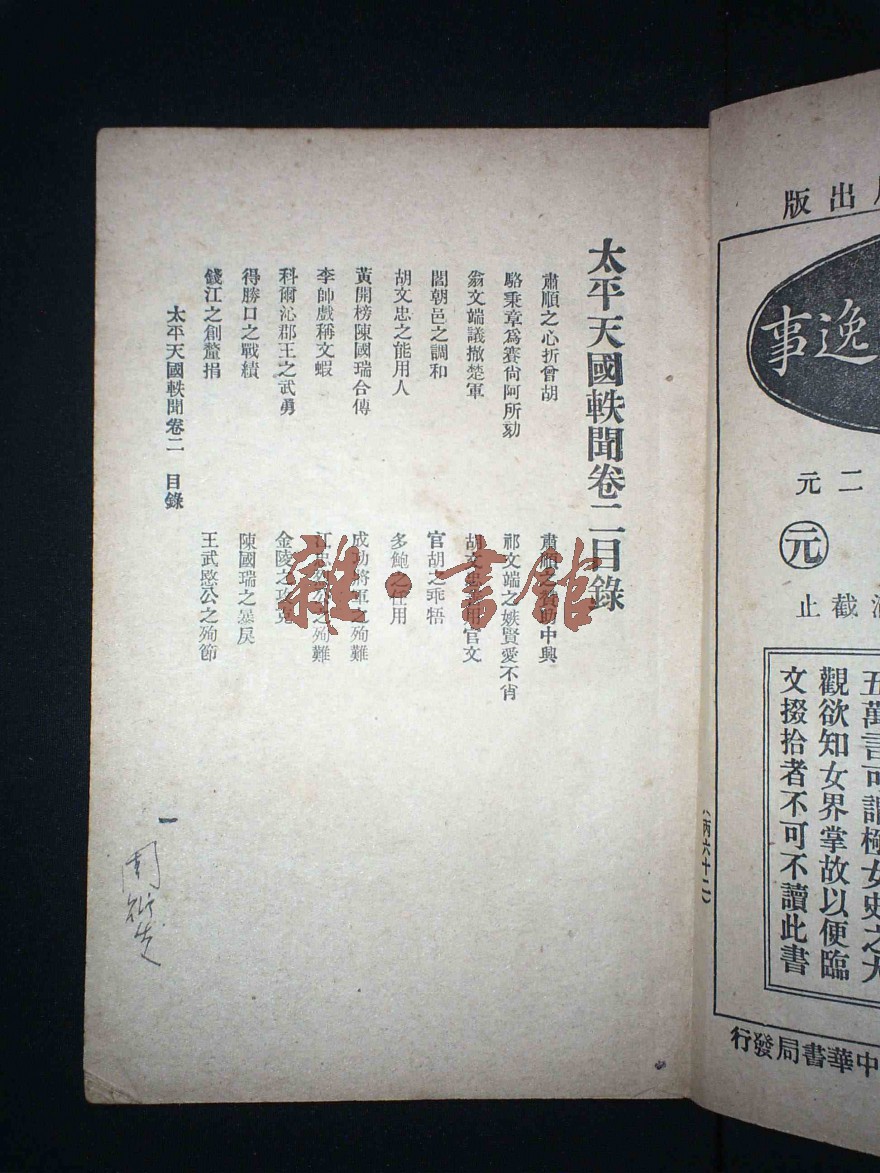 出版
逸事
二元
元
截止
五萬言可謂極女史之大
觀欲知女界掌故以便臨
文掇拾者不可不讀此書
中華書局發行
(丙六十二)
太平天國軼聞卷二目錄
肅順之心折曾胡 肅順之贊助中興
駱秉章爲賽尙阿所劾 祁文端之嫉賢愛不肯
翁文端議撤楚軍 胡文忠官文
閻朝邑之調和 官胡之乖牾
胡文忠之能用人 多鮑之任用
黃開榜陳國瑞合傳 成功將軍之殉難
李帥戲稱文蝦 江忠烈公之殉難
科爾沁郡王之武勇 金陵之攻克
得勝口之戰績 陳國瑞之暴戾
錢江之創釐捐 王武愍公之殉節
太平天國軼聞卷二 目錄
一
雜·書館